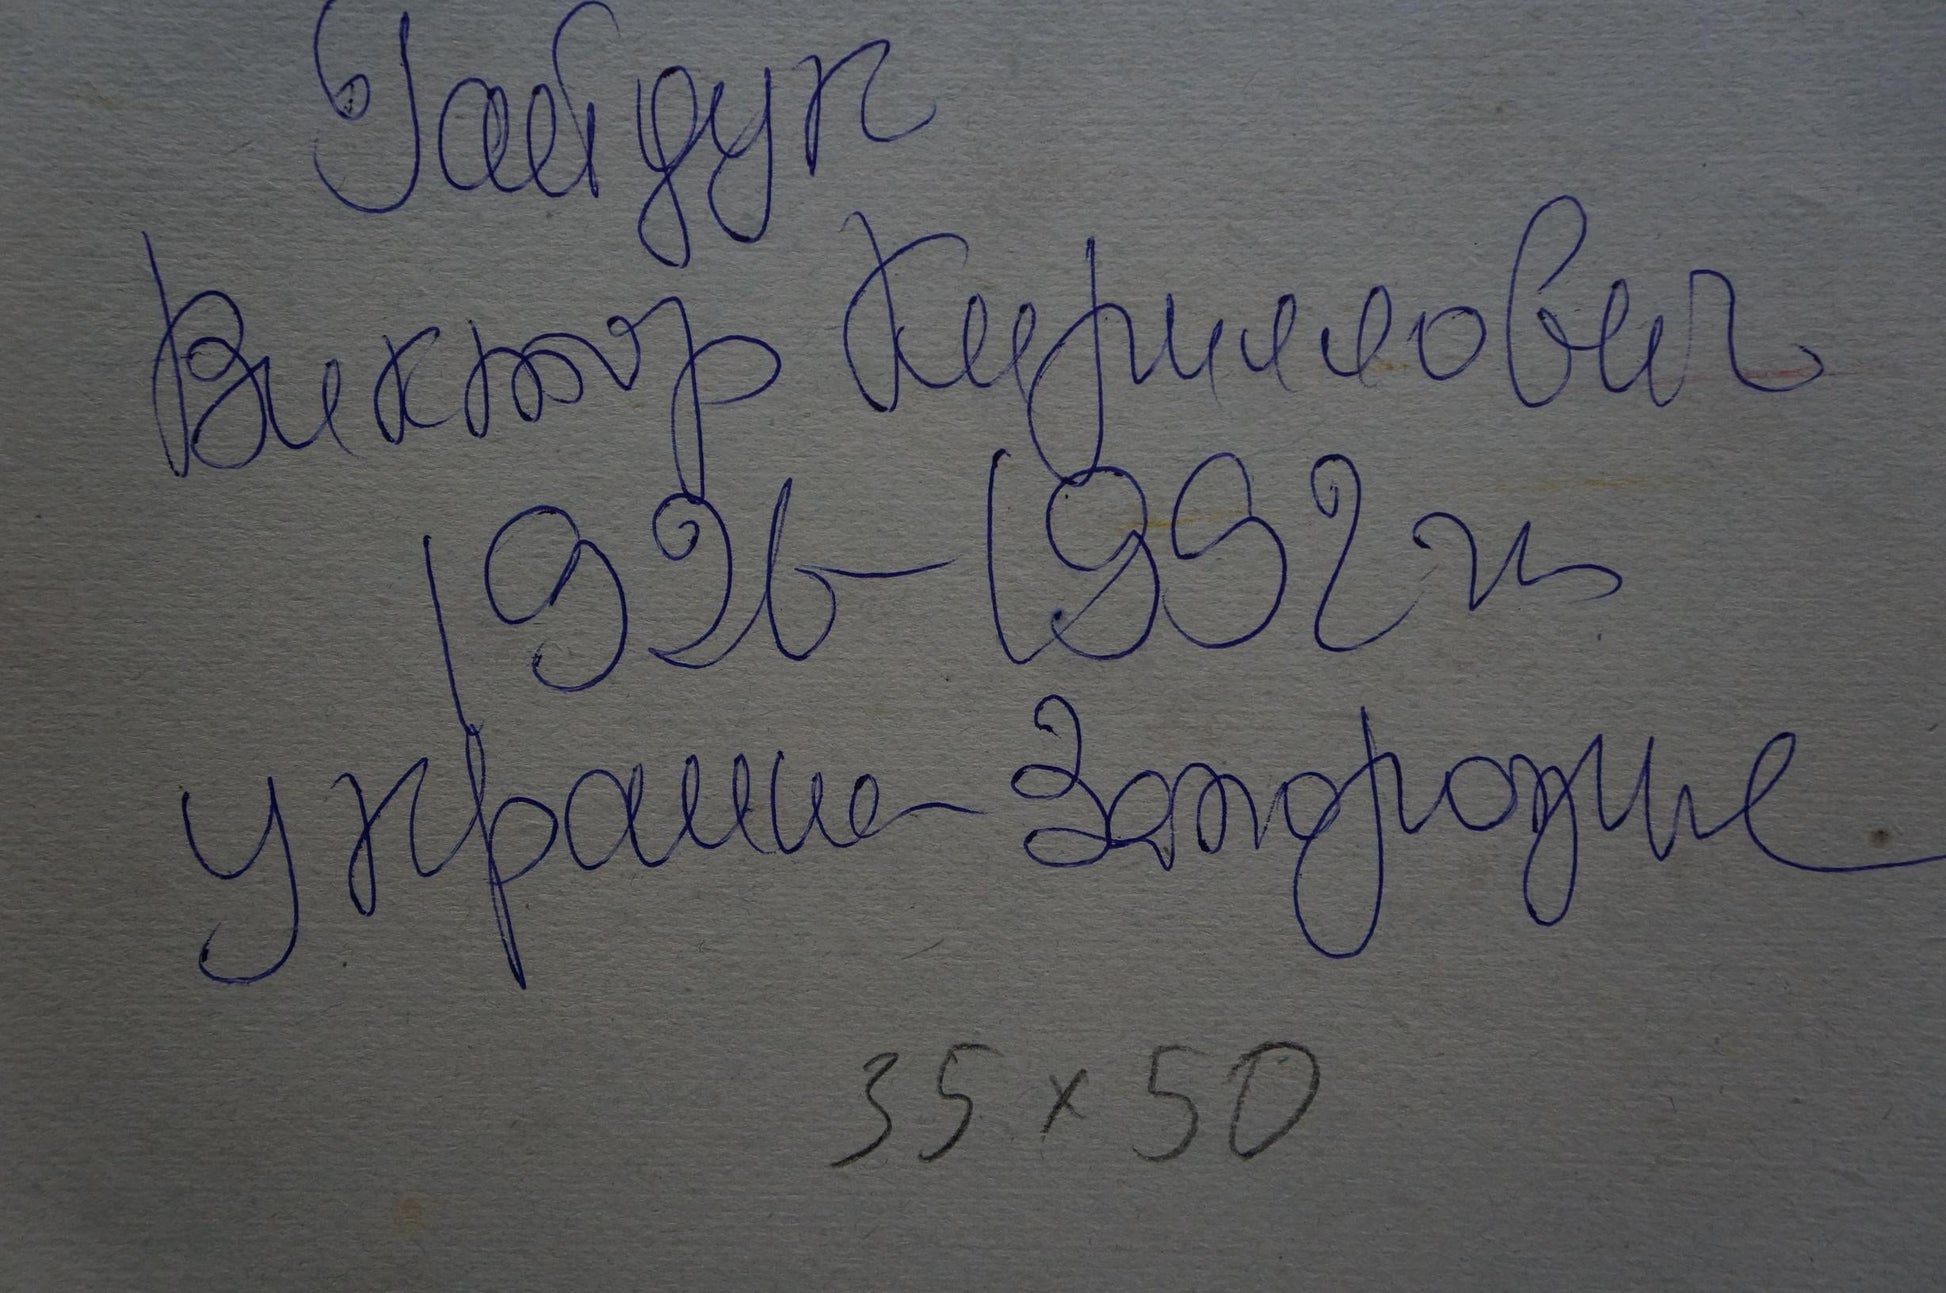 Гайдук
Виктор Кириллович
1926-1992 гг.
Украина-Запорожье
35 x 50